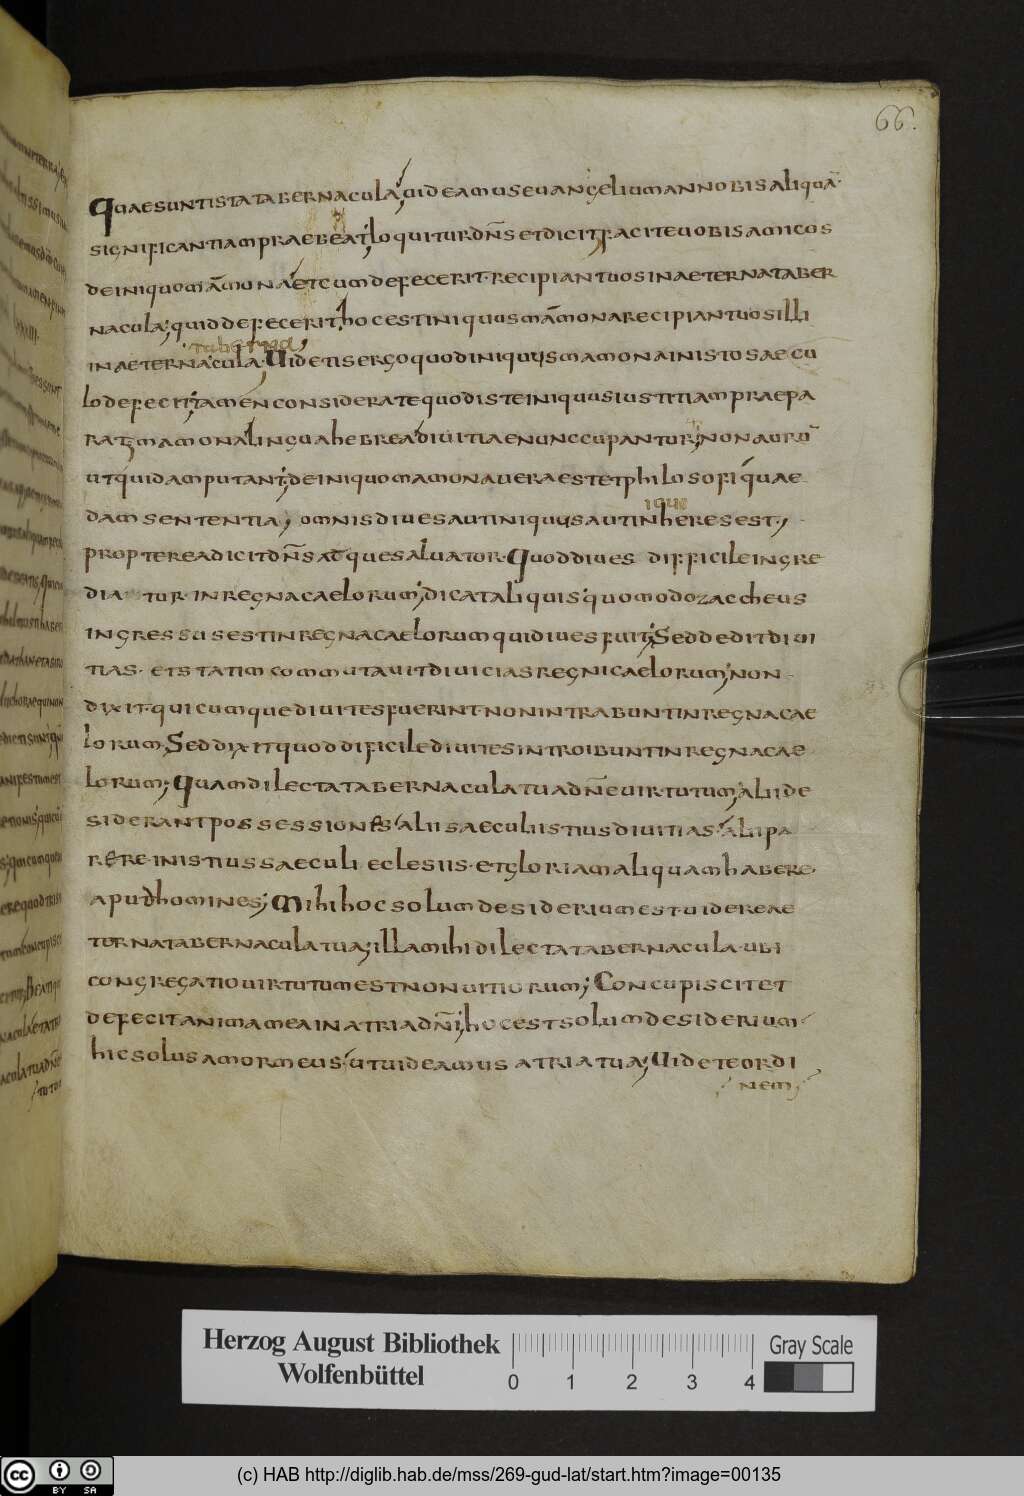 66.
Quae sunt ista tabernacula; uideamus euangelium an nobis aliquā
significantiam praebeat; loquitur dn̄s et dicit; facite uobis amicos
de iniquo māmona; et cum defecerit· recipiant uos in aeterna taber
nacula; quid defecerit; hoc est iniquus māmona recipiant uos illi
tabernac
in aeternacula· Uidetis ergo quod iniquus mamona in isto saecu
lo defecit; tamen considerate quod iste iniquus iustitiam praepa
rat; mamona lingua hebrea diuitiae nunccupantur; non aurū
ut quidam putant; de iniquo mamona uera est et philosofi quae
dam sententia; omnis diues aut iniquus aut
iniqui
heres est;
propterea dicit dn̄s atque saluator· Quod diues difficile ingre
diatur in regna caelorum; dicat aliquis quomodo zaccheus
ingressus est in regna caelorum qui diues fuit; Sed dedit diui
tias· et statim commutauit diuicias regni caelorum; non
dixit· quicumque diuites fuerint· non intrabunt in regna cae
lorum; Sed dixit quod dificile diuites introibunt in regna cae
lorum; Quam dilecta tabernacula tua dn̄e uirtutum; alii de
siderant possessiones alii saeculi istius diuitias· alii pa
rere· in istius saeculi eclesiis· et gloriam aliquam habere·
apud homines; Mihi hoc solum desiderium est uidere ae
terna tabernacula tua; illa mihi dilecta tabernacula· ubi
congregatio uirtutum est non uitiorum; Concupiscit et
defecit anima mea in atria dn̄i; hoc est solum desiderium
hic solus amor meus· ut uideamus atria tua; Uidete ordi
nem;
Herzog August Bibliothek
Wolfenbüttel
0 1 2 3 4
Gray Scale
cc BY SA
(c) HAB http://diglib.hab.de/mss/269-gud-lat/start.htm?image=00135